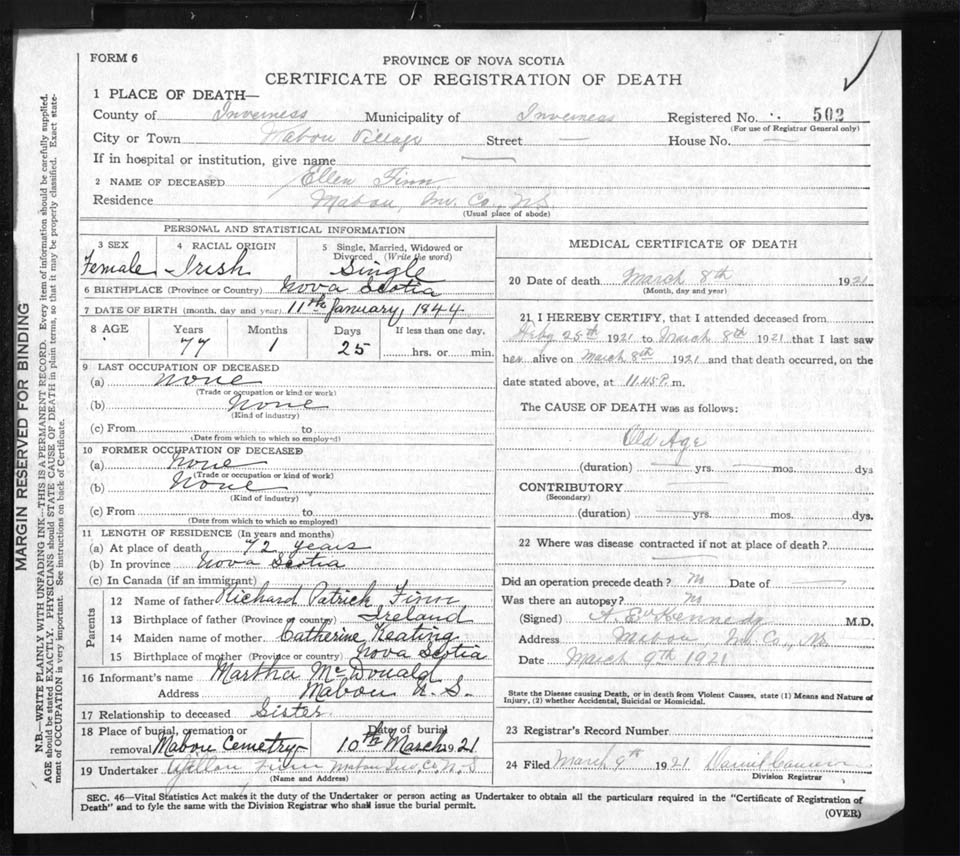 FORM 6
PROVINCE OF NOVA SCOTIA
CERTIFICATE OF REGISTRATION OF DEATH
1 PLACE OF DEATH—
County of Inverness Municipality of Inverness Registered No. 502
(For use of Registrar General only)
City or Town Mabou Village Street — House No. —
If in hospital or institution, give name —
2 NAME OF DECEASED Ellen Finn
Residence Mabou, Inv. Co., N.S.
(Usual place of abode)
PERSONAL AND STATISTICAL INFORMATION
3 SEX
Female
4 RACIAL ORIGIN
Irish
5 Single, Married, Widowed or Divorced (Write the word)
Single
6 BIRTHPLACE (Province or Country) Nova Scotia
7 DATE OF BIRTH (month, day and year) 11th January, 1844
8 AGE Years Months Days If less than one day,
77 1 25 hrs. or min.
9 LAST OCCUPATION OF DECEASED
(a) None
(Trade or occupation or kind or work)
(b) None
(Kind of industry)
(c) From to
(Date from which to which so employed)
10 FORMER OCCUPATION OF DECEASED
(a) None
(Trade or occupation or kind of work)
(b) None
(Kind of industry)
(c) From to
(Date from which to which so employed)
11 LENGTH OF RESIDENCE (In years and months)
(a) At place of death 72 years
(b) In province Nova Scotia
(c) In Canada (if an immigrant)
Parents
12 Name of father Richard Patrick Finn
13 Birthplace of father (Province or country) Ireland
14 Maiden name of mother Catherine Keating
15 Birthplace of mother (Province or country) Nova Scotia
16 Informant's name Martha McDonald
Address Mabou N. S.
17 Relationship to deceased Sister
18 Place of burial, cremation or removal Mabou Cemetry
Date of burial 10th March 1921
19 Undertaker Finn Mabou Inv. Co. N. S
(Name and Address)
MEDICAL CERTIFICATE OF DEATH
20 Date of death March 8th 1921
(Month, day and year)
21 I HEREBY CERTIFY, that I attended deceased from
Feby 25th 1921 to March 8th 1921 that I last saw
her alive on March 8th 1921 and that death occurred, on the
date stated above, at 11.45 P. m.
The CAUSE OF DEATH was as follows:
Old Age
(duration) — yrs. — mos. dys
CONTRIBUTORY —
(Secondary)
(duration) — yrs. — mos. dys.
22 Where was disease contracted if not at place of death?
—
Did an operation precede death? No Date of —
Was there an autopsy? No
(Signed) Kennedy M.D.
Address Mabou Inv. Co., N.S.
Date March 9th 1921
State the Disease causing Death, or in death from Violent Causes, state (1) Means and Nature of
Injury, (2) whether Accidental, Suicidal or Homicidal.
23 Registrar's Record Number
24 Filed March 9th 1921 Daniel Cameron
Division Registrar
SEC. 46—Vital Statistics Act makes it the duty of the Undertaker or person acting as Undertaker to obtain all the particulars required in the "Certificate of Registration of
Death" and to fyle the same with the Division Registrar who shall issue the burial permit.
(OVER)
MARGIN RESERVED FOR BINDING
N.B.—WRITE PLAINLY WITH UNFADING INK—THIS IS A PERMANENT RECORD. Every item of information should be carefully supplied.
AGE should be stated EXACTLY. PHYSICIANS should STATE CAUSE OF DEATH in plain terms, so that it may be properly classified. Exact state-
ment of OCCUPATION is very important. See instructions on back of Certificate.